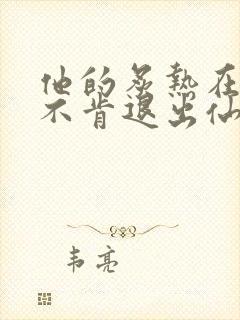 他的炙热在
不肯退出仙
韦亮